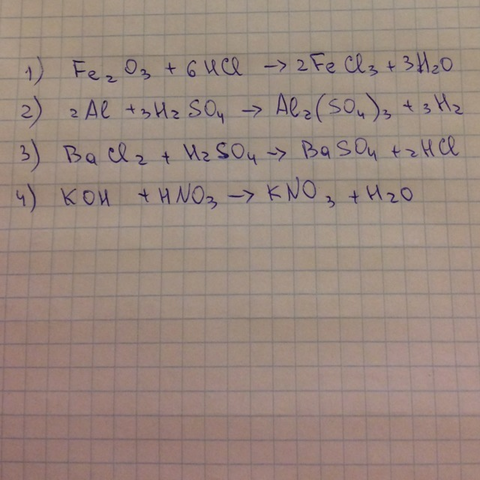 1) Fe2O3 + 6HCl → 2FeCl3 + 3H2O
2) 2Al + 3H2SO4 → Al2(SO4)3 + 3H2
3) BaCl2 + H2SO4 → BaSO4 + 2HCl
4) KOH + HNO3 → KNO3 + H2O